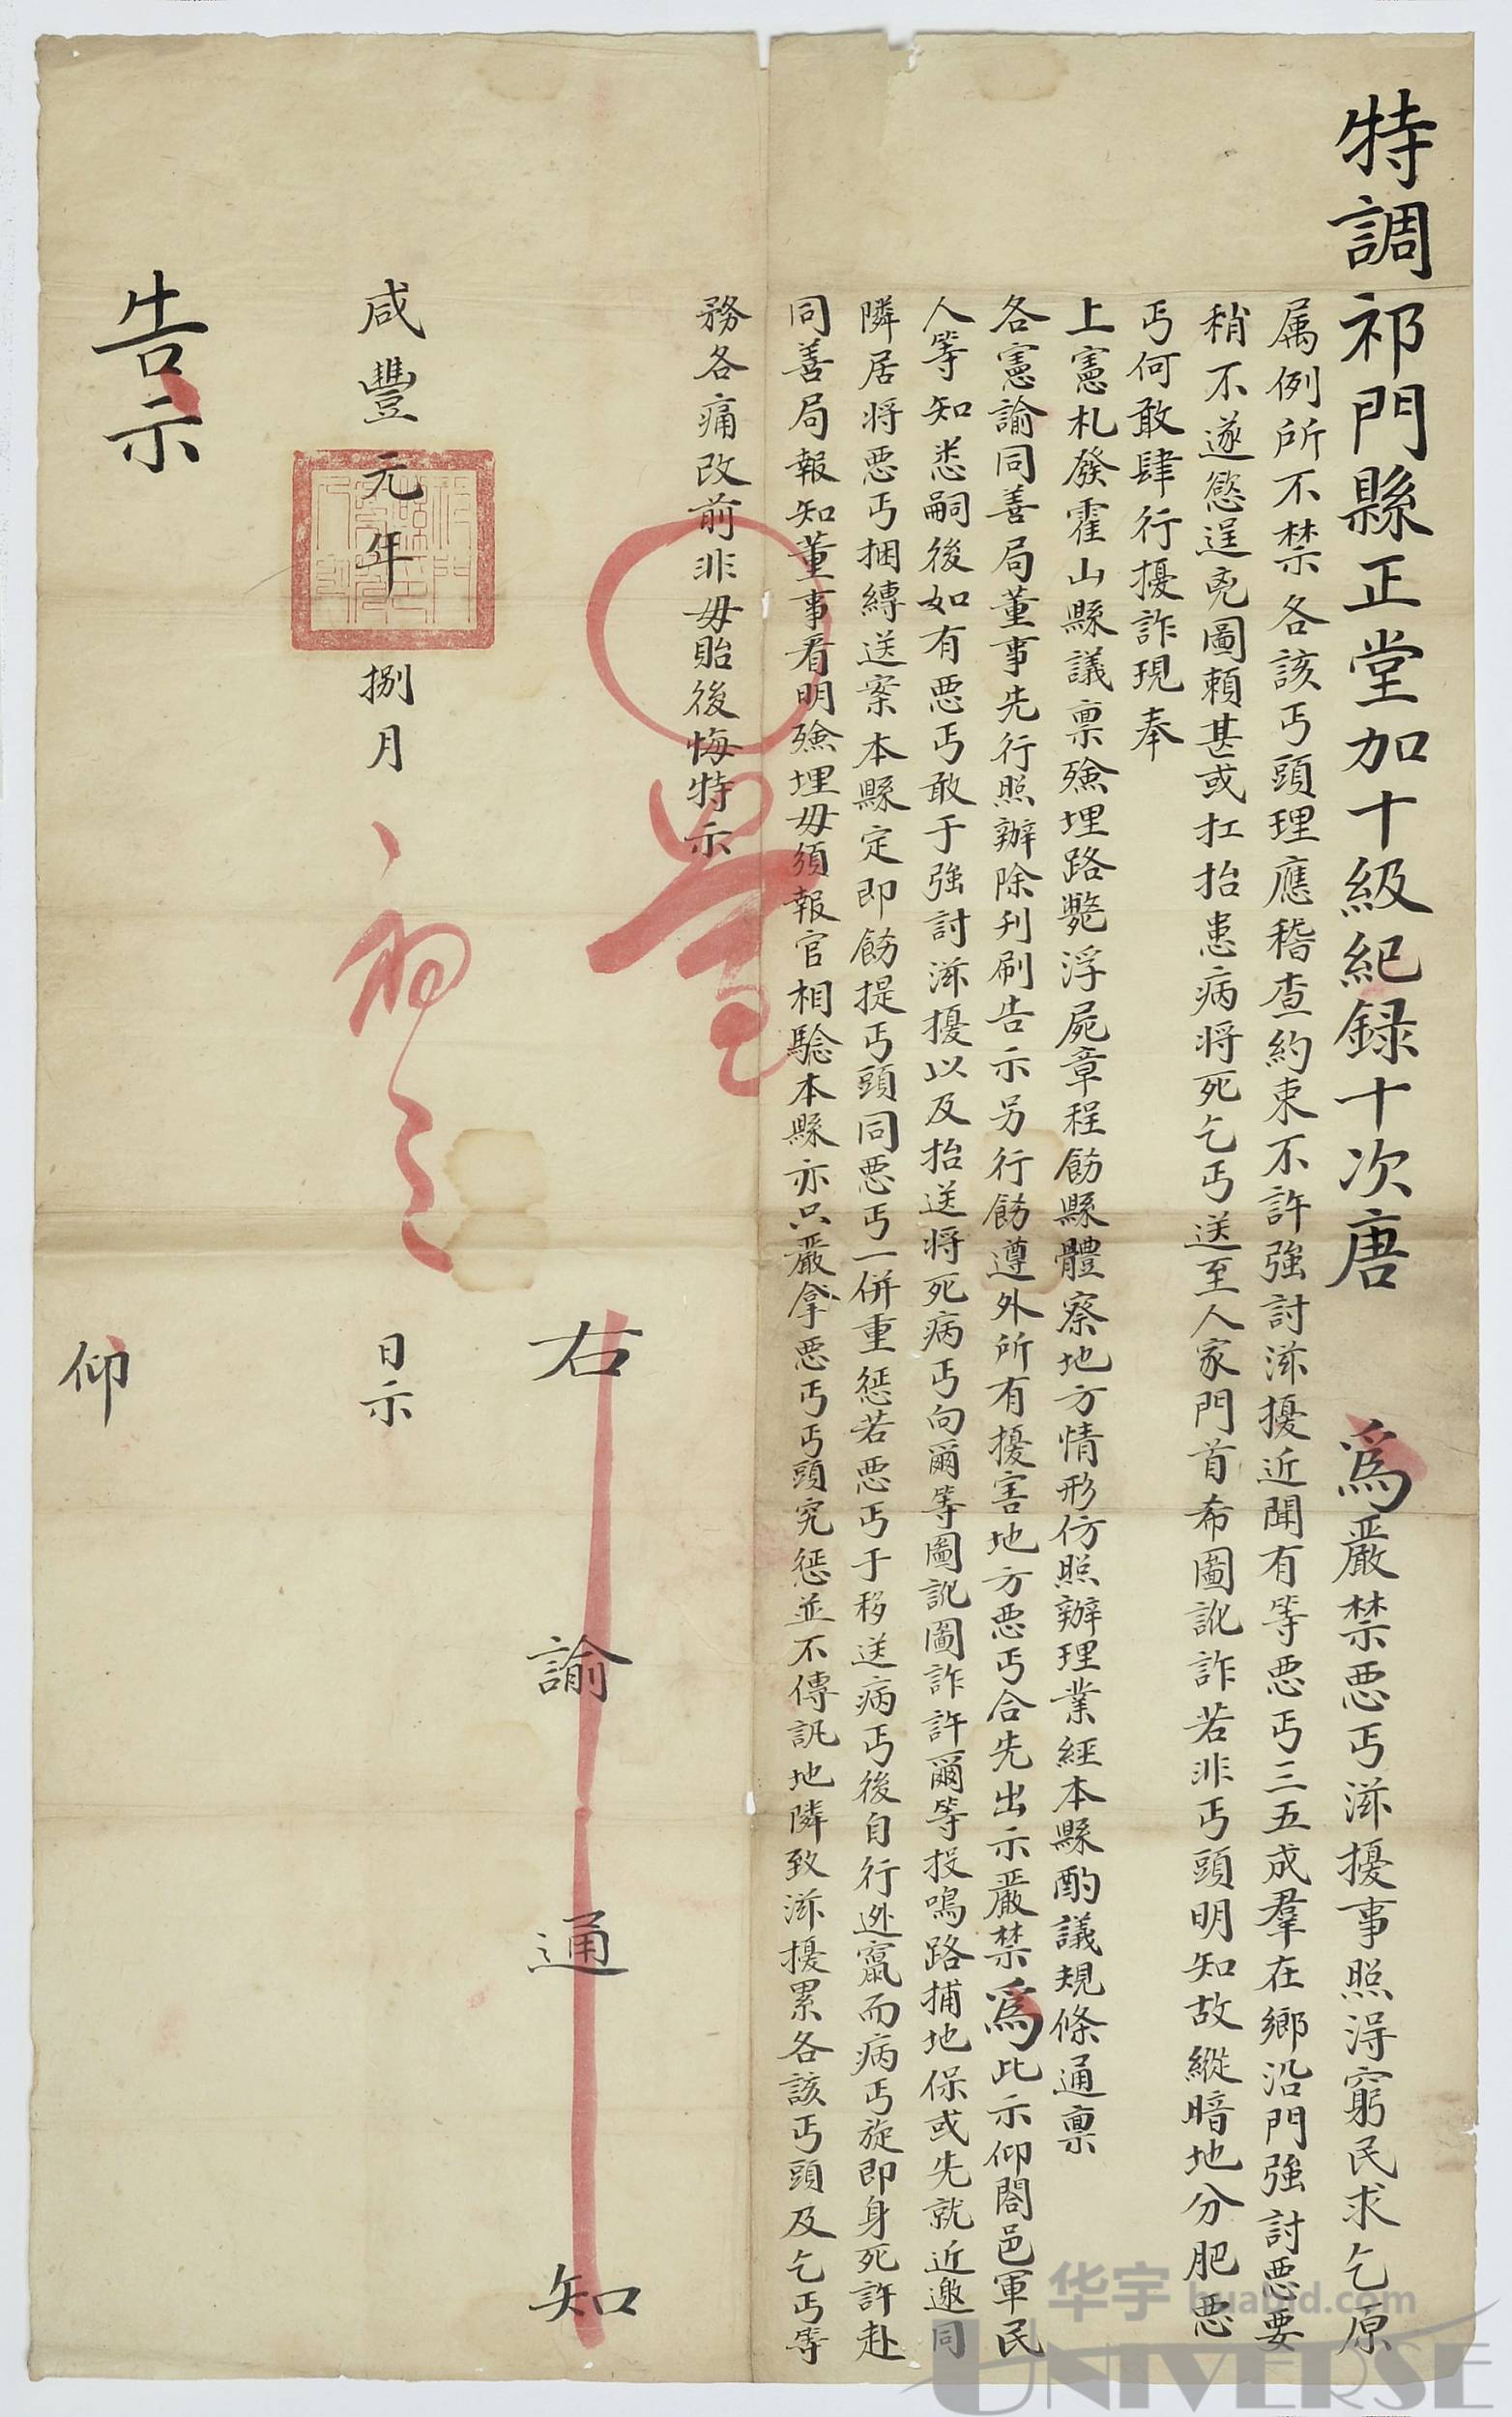 特調祁門縣正堂加十級紀録十次唐　為嚴禁惡丐滋擾事照淂窮民求乞原
属例所不禁各該丐頭理應稽查約束不許強討滋擾近聞有等惡丐三五成羣在鄉沿門強討惡要
稍不遂慾逞兇圖頼甚或扛抬患病將死乞丐送至人家門首希圖訛詐若非丐頭明知故縱暗地分肥惡
丐何敢肆行擾詐現奉
上憲札發霍山縣議稟殮埋路斃浮屍章程飭縣體察地方情形仿照辦理業經本縣酌議規條通稟
各憲諭同善局董事先行照辦除刋刷告示另行飭遵外所有擾害地方惡丐合先出示嚴禁為此示仰閤邑軍民
人等知悉嗣後如有惡丐敢于強討滋擾以及抬送將死病丐向爾等圖訛圖詐許爾等投鳴路捕地保或先就近邀同
隣居將惡丐捆縛送案本縣定即飭提丐頭同惡丐一併重懲若惡丐于移送病丐後自行迯竄而病丐旋即身死許赴
同善局報知董事看明殮埋毋須報官相驗本縣亦只嚴拿惡丐丐頭究懲並不傳訊地隣致滋擾累各該丐頭及乞丐等
務各痛改前非毋貽後悔特示
右諭通知
咸豐元年捌月　日示
告示
仰
华宇 huabid.com
UNIVERSE